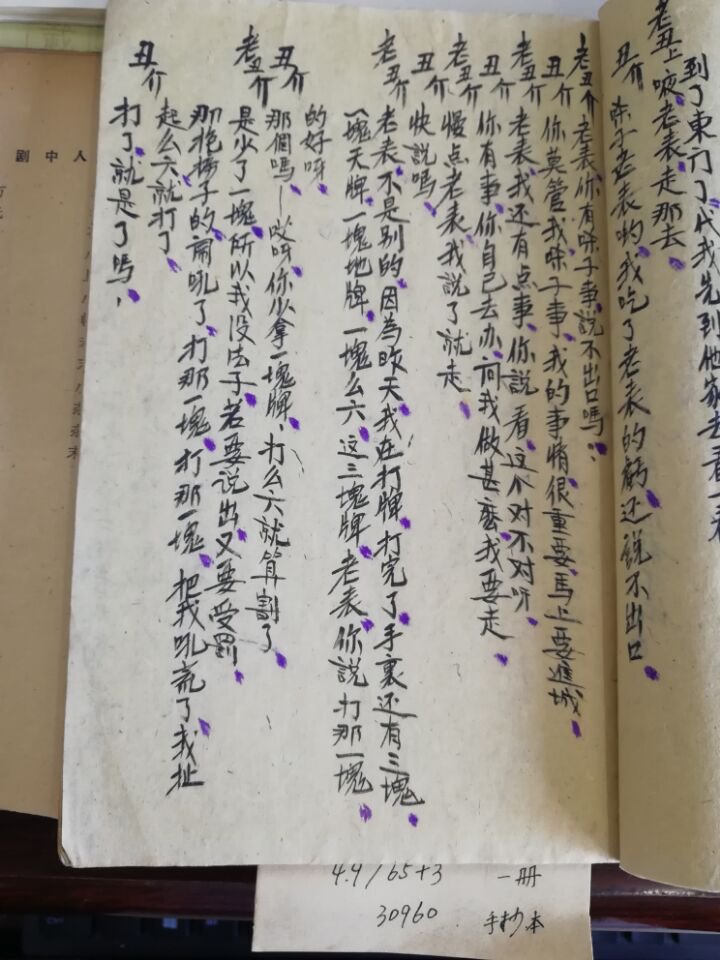 到了東门了代我先到他家去看一看
老丑上 唉老表走那去
丑介 味子老表哟我吃了老表的虧还説不出口
老丑介 老表你有味子事説不出口嗎
丑介 你莫管我味子事我的事情很重要馬上要進城
老丑介 老表我还有点事你説看这个对不对呀
丑介 你有事你自己去办问我做甚麽我要走
老丑介 慢点老表我説了就走
丑介 快説嗎
老丑介 老表不是别的因為昨天我在打牌打完了手裏还有三塊
一塊天牌一塊地牌一塊么六这三塊牌老表你説打那一塊
的好呀
丑介 那個嗎—哎呀你少拿一塊牌打么六就算割了
老丑介 是少了一塊所以我没法子若要说出又要受罰
那抱梯子的闹吼了打那一塊打那一塊把我吼亮了我扯
起么六就打了
丑介 打了就是了嗎
剧中人
4.9/65+3 一册
30960 手抄本